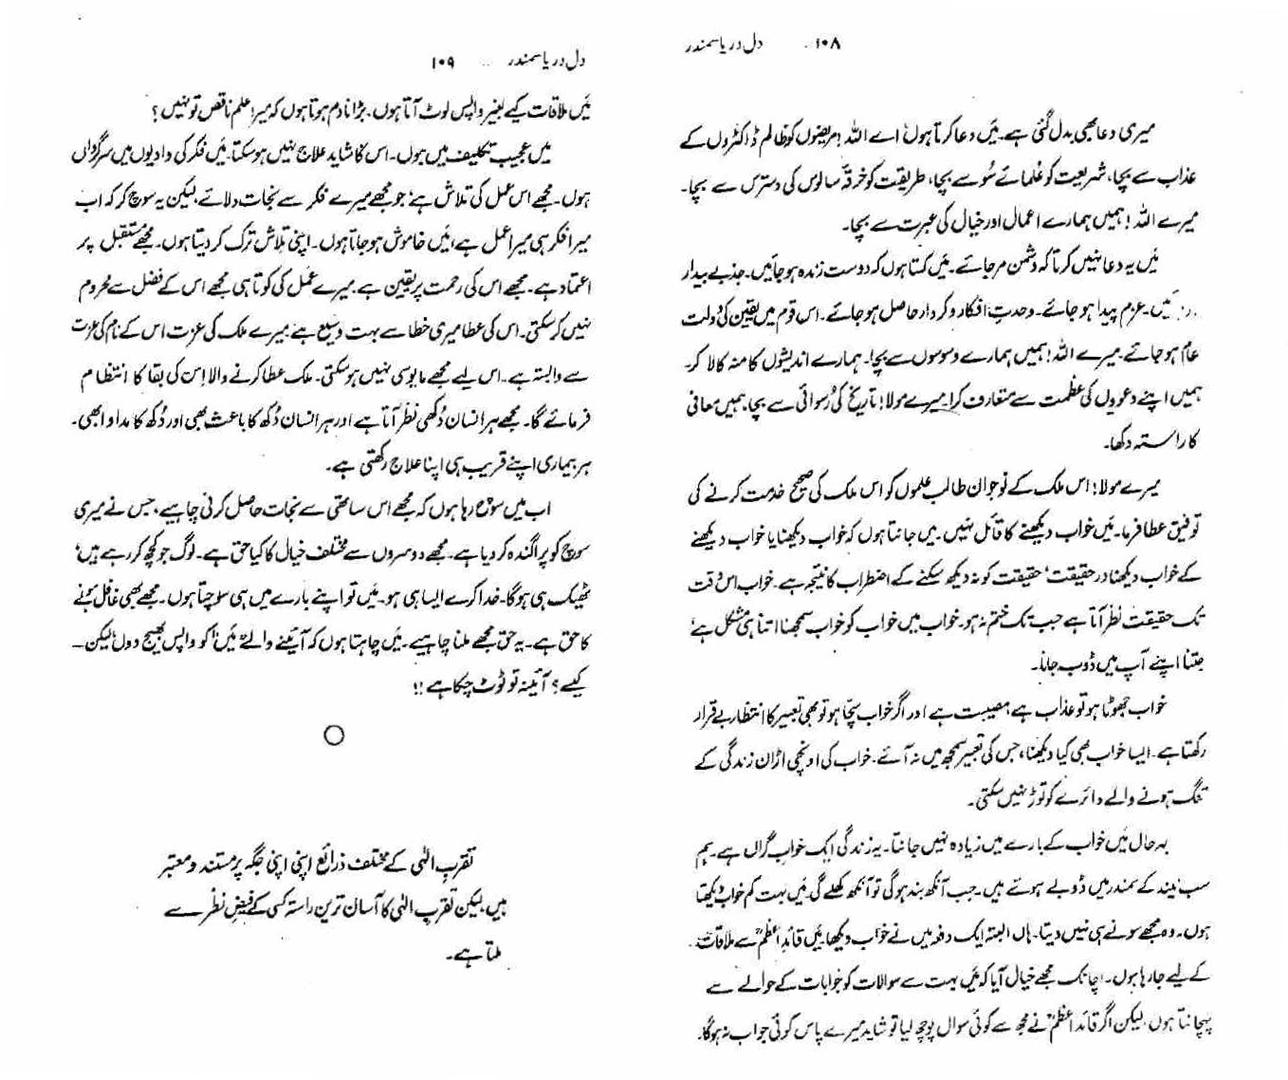 ۱۰۸ دل دریا سمندر
میری دعا بھی بدل گئی ہے۔ میں دعا کرتا ہوں اے اللہ! مریضوں کو ظالم ڈاکٹروں کے
عذاب سے بچا، شریعت کو علمائے سُو سے بچا، طریقت کو خرقۂ سالوس کی دسترس سے بچا۔
میرے اللہ! ہمیں ہمارے اعمال اور خیال کی عبرت سے بچا۔
میں یہ دعا نہیں کرتا کہ دشمن مر جائے۔ میں کہتا ہوں کہ دوست زندہ ہو جائیں۔ جذبے بیدار
عزم پیدا ہو جائے۔ وحدتِ افکار و کردار حاصل ہو جائے۔ اس قوم میں یقین کی دولت
عام ہو جائے۔ میرے اللہ! ہمیں ہمارے وسوسوں سے بچا۔ ہمارے اندیشوں کا منہ کالا کر۔
ہمیں اپنے دعووں کی عظمت سے متعارف کرا۔ میرے مولا! تاریخ کی رُسوائی سے بچا۔ ہمیں معافی
کا راستہ دکھا۔
میرے مولا! اس ملک کے نوجوان طالب علموں کو اس ملک کی صحیح خدمت کرنے کی
توفیق عطا فرما۔ میں خواب دیکھنے کا قائل نہیں۔ میں جانتا ہوں کہ خواب دیکھنا یا خواب دیکھنے
کے خواب دیکھنا در حقیقت، حقیقت کو نہ دیکھ سکنے کے اضطراب کا نتیجہ ہے۔ خواب اس وقت
تک حقیقت نظر آتا ہے جب تک ختم نہ ہو۔ خواب میں خواب کو خواب سمجھنا اتنا ہی مشکل ہے
جتنا اپنے آپ میں ڈوب جانا۔
خواب جھوٹا ہو تو عذاب ہے مصیبت ہے اور اگر خواب سچا ہو تو بھی تعبیر کا انتظار بے قرار
رکھتا ہے۔ ایسا خواب بھی کیا دیکھنا، جس کی تعبیر سمجھ میں نہ آئے۔ خواب کی اونچی اڑان زندگی کے
تنگ ہونے والے دائرے کو توڑ نہیں سکتی۔
بہ حال میں خواب کے بارے میں زیادہ نہیں جانتا۔ یہ زندگی ایک خوابِ گراں ہے۔ ہم
سب نیند کے سمندر میں ڈوبے ہوئے ہیں۔ جب آنکھ بند ہوگی تو آنکھ کھلے گی۔ میں بہت کم خواب دیکھتا
ہوں۔ وہ مجھے سونے ہی نہیں دیتا۔ ہاں البتہ ایک دفعہ میں نے خواب دیکھا۔ میں قائدِ اعظمؒ سے ملاقات
کے لیے جا رہا ہوں۔ اچانک مجھے خیال آیا کہ میں بہت سے سوالات کو جوابات کے حوالے سے
پہچانتا ہوں لیکن اگر قائد اعظمؒ نے مجھ سے کوئی سوال پوچھ لیا تو شاید میرے پاس کوئی جواب نہ ہوگا۔
دل دریا سمندر ۱۰۹
میں ملاقات کیے بغیر واپس لوٹ آتا ہوں۔ بڑا نادم ہوتا ہوں کہ میرا علم ناقص تو نہیں؟
میں عجیب تکلیف میں ہوں۔ اس کا شاید علاج نہیں ہو سکتا۔ میں فکر کی وادیوں میں سرگرداں
ہوں۔ مجھے اس عمل کی تلاش ہے، جو مجھے میرے فکر سے نجات دلائے، لیکن یہ سوچ کر کہ اب
میرا فکر ہی میرا عمل ہے، میں خاموش ہو جاتا ہوں۔ اپنی تلاش ترک کر دیتا ہوں۔ مجھے مستقبل پر
اعتماد ہے۔ مجھے اس کی رحمت پر یقین ہے۔ میرے عمل کی کوتاہی مجھے اس کے فضل سے محروم
نہیں کر سکتی۔ اس کی عطا میری خطا سے بہت وسیع ہے۔ میرے ملک کی عزت اس کے نام کی عزت
سے وابستہ ہے۔ اس لیے مجھے مایوسی نہیں ہو سکتی۔ ملک عطا کرنے والا اس کی بقا کا انتظام
فرمائے گا۔ مجھے ہر انسان دُکھی نظر آتا ہے اور ہر انسان دُکھ کا باعث بھی اور دُکھ کا مداوا بھی۔
ہر بیماری اپنے قریب ہی اپنا علاج رکھتی ہے۔
اب میں سوچ رہا ہوں کہ مجھے اس ساتھی سے نجات حاصل کرنی چاہیے، جس نے میری
سوچ کو پراگندہ کر دیا ہے۔ مجھے دوسروں سے مختلف خیال کا کیا حق ہے۔ لوگ جو کچھ کر رہے ہیں،
ٹھیک ہی ہوگا۔ خدا کرے ایسا ہی ہو۔ میں تو اپنے بارے میں ہی سوچتا ہوں۔ مجھے بھی غافل ہونے
کا حق ہے۔ یہ حق مجھے ملنا چاہیے۔ میں چاہتا ہوں کہ آئینے والے "میں" کو واپس بھیج دوں لیکن ــ
کیسے؟ آئینہ تو ٹوٹ چکا ہے!!
تقربِ الٰہی کے مختلف ذرائع اپنی اپنی جگہ پر مستند و معتبر
ہیں لیکن تقربِ الٰہی کا آسان ترین راستہ کسی کے فیضِ نظر سے
ملتا ہے۔